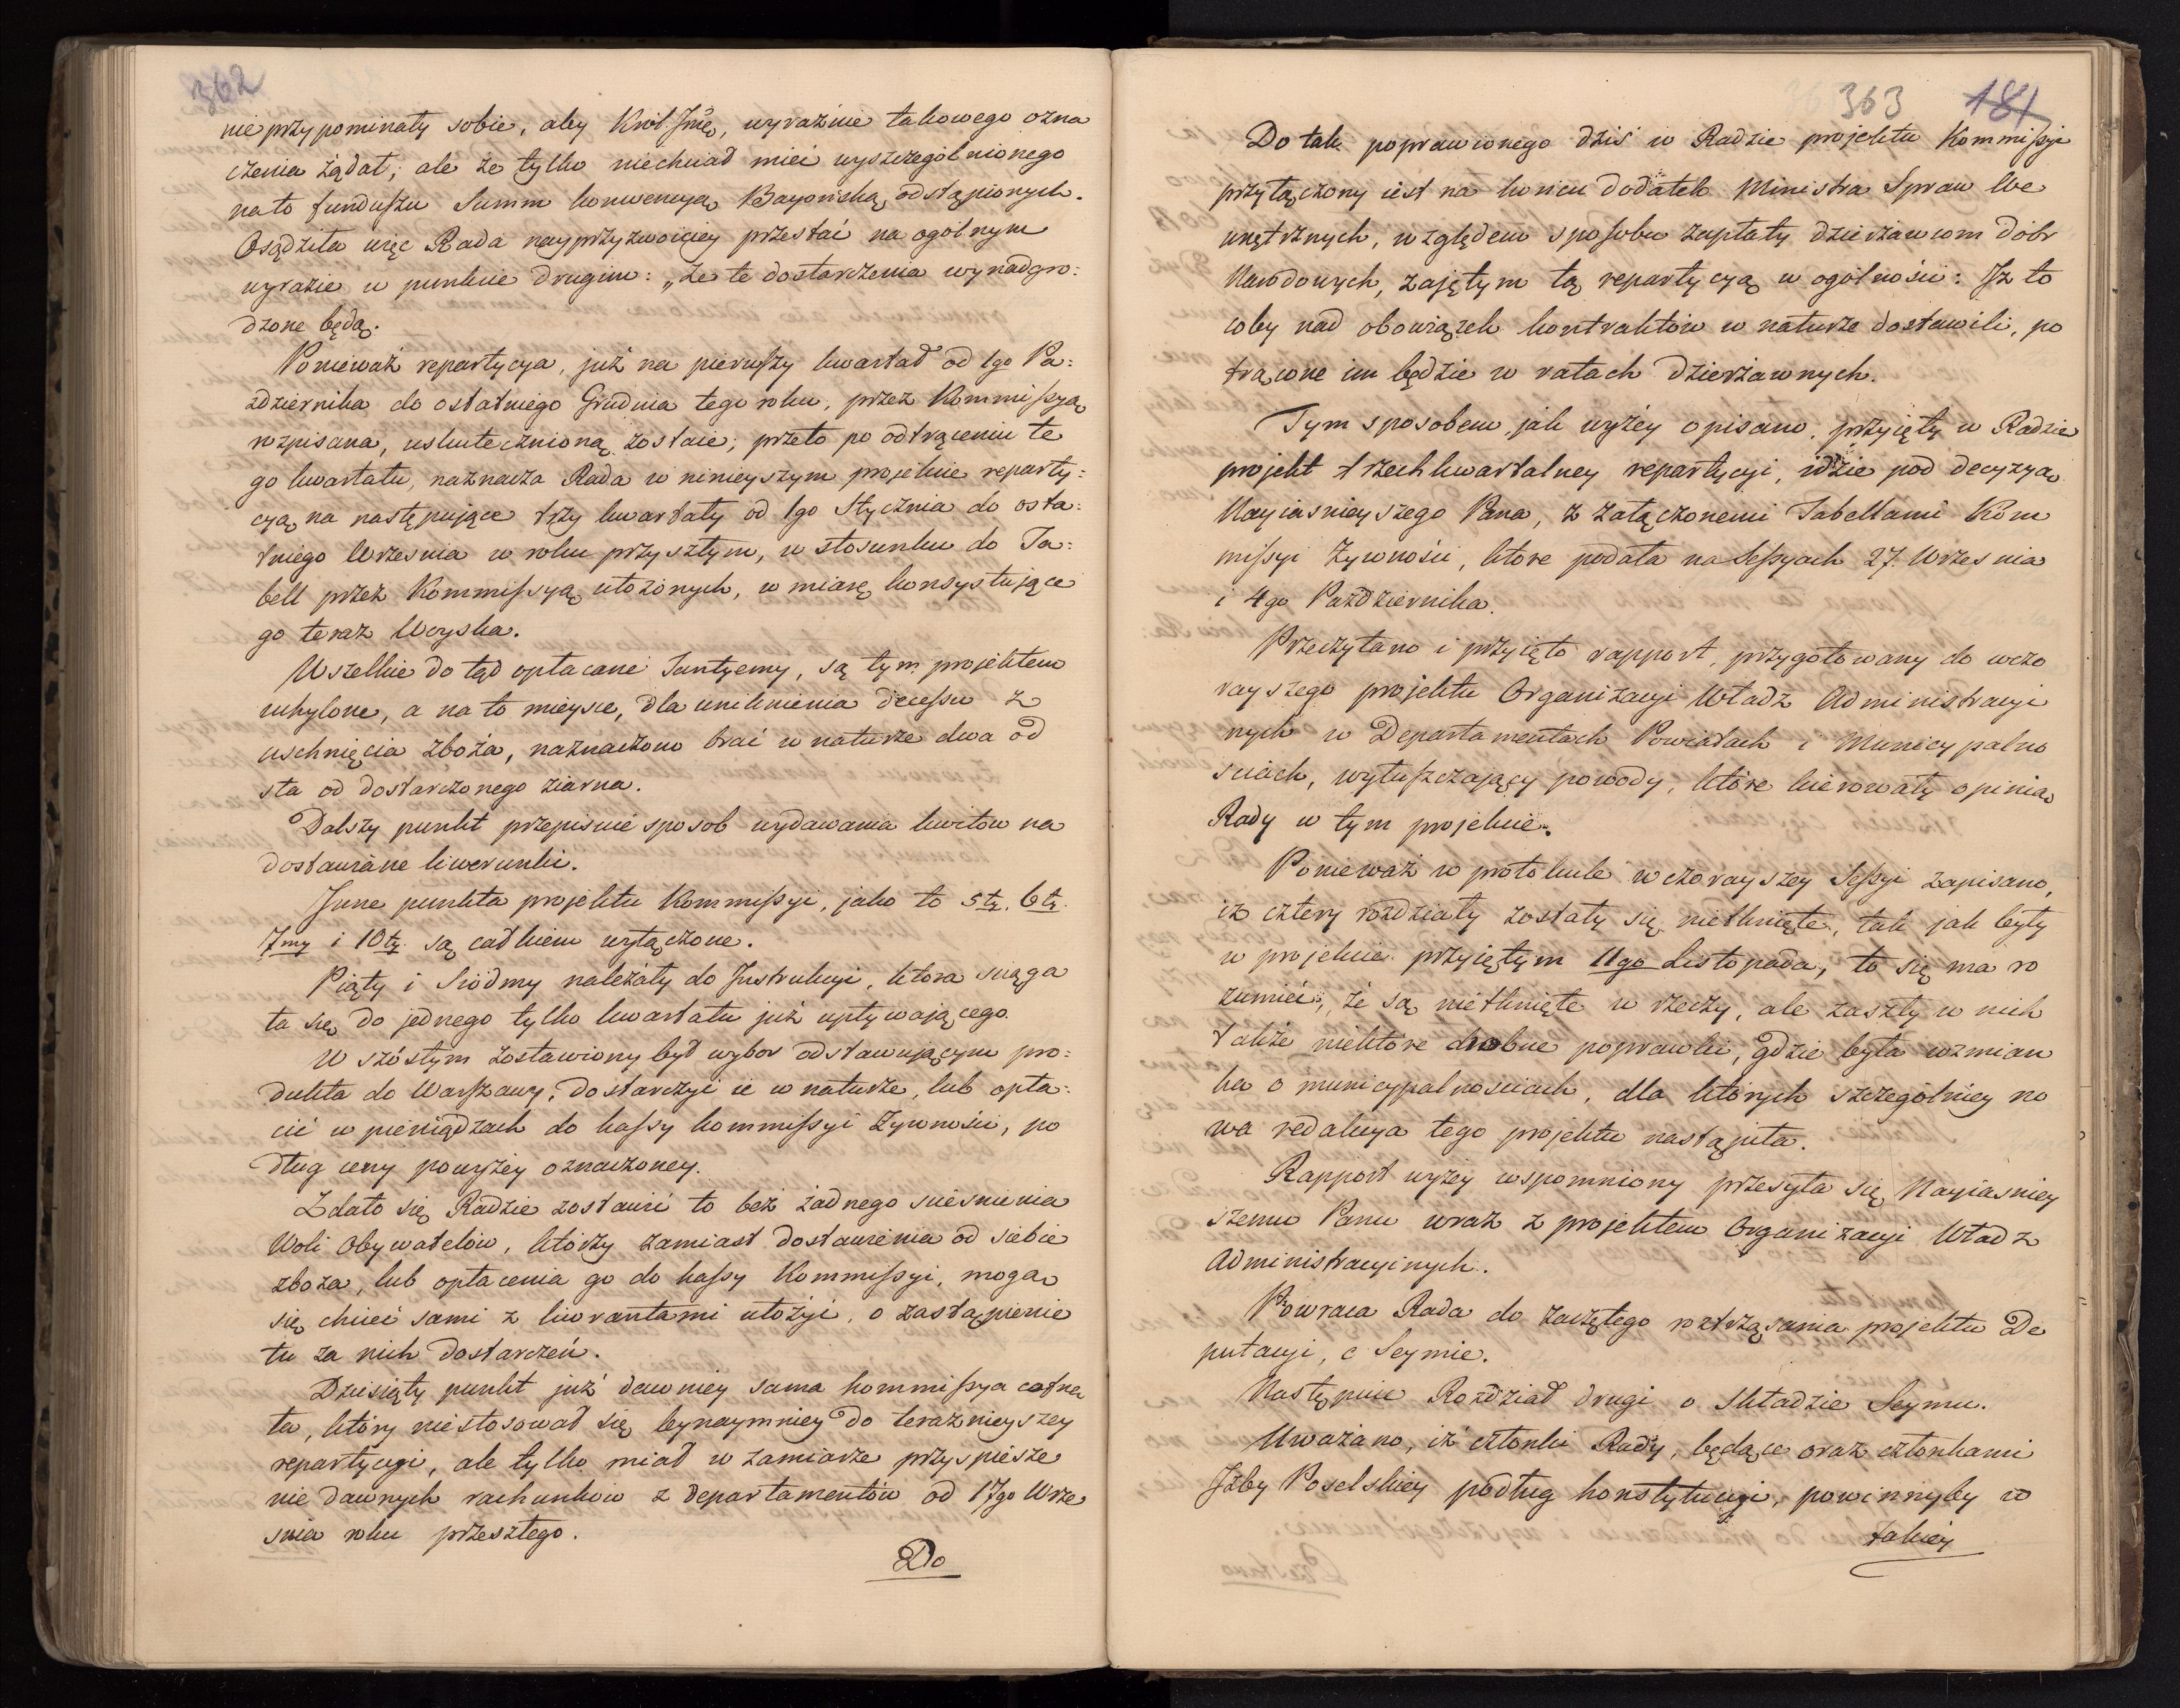 362
nie przypominały sobie, aby Król Jmć, wyraźnie takowego ozna
czenia żądał; ale że tylko niechciał mieć wyszczególnionego
na to funduszu Summ konwencyą Bayońską odstąpionych.
Osądziła więc Rada nayprzyzwoiciey przestać na ogólnym
wyrazie w punkcie drugim: „że te dostarczenia wynadgro:
dzone będą.
Ponieważ repartycya, już na pierwszy kwartał od 1go Pa:
zdziernika do ostatniego Grudnia tego roku, przez Kommissyą
rozpisana, uskutecznioną zostaie; przeto po odtrąceniu te
go kwartału, naznacza Rada w ninieyszym projekcie reparty:
cyą na następujące trzy kwartały od 1go Stycznia do osta:
tniego Września w roku przyszłym, w stosunku do Ta:
bell przez Kommissyą ułożonych, w miarę konsystujące
go teraz Woyska.
Wszelkie do tąd opłacane Tantyemy, są tym projektem
uchylone, a na to mieysce, dla uniknienia decessu z
uschnięcia zboża, naznaczono brać w naturze dwa od
sta od dostarczonego ziarna.
Dalszy punkt przepisuie sposob wydawania kwitów na
dostawiane liwerunki.
Jnne punkta projektu Kommissyi, jako to 5ty. 6ty.
7my i 10ty. są całkiem wyłączone.
Piąty i Siódmy należały do Jnstrukcyi, ktora sciąga
ła się do jednego tylko kwartału już upływającego.
W szóstym zostawiony był wybor odstawującym pro:
dukta do Warszawy; dostarczyć ie w naturze, lub opła:
cić w pieniądzach do kassy kommissyi Żywności, po
dług ceny powyżey oznaczoney.
Zdało się Radzie zostawić to bez żadnego scieśnienia
Woli Obywatelów, którzy zamiast dostawienia od siebie
zboża, lub opłacenia go do kassy Kommissyi, mogą
się chcieć sami z liwerantami ułożyć, o zastąpienie
tu za nich dostarczeń.
Dziesiąty punkt już dawniey sama kommissya cofnę
ła, który niestosował się bynaymniey do teraznieyszey
repartycyi, ale tylko miał w zamiarze przyspiesze
nie dawnych rachunkow z departamentów od 17go Wrze
śnia roku przeszłego.
Do
363 181
Do tak poprawionego dziś w Radzie projektu Kommissyi
przyłączony iest na końcu dodatek Ministra Spraw We
wnętrznych, względem sposobu zapłaty dzierżawcom dóbr
Narodowych, zajętym tą repartycyą w ogólności: Jż to
coby nad obowiązek kontraktów w naturze dostawili, po
trącone im będzie w ratach dzierżawnych.
Tym sposobem, jak wyżey opisano, przyięty w Radzie
projekt trzechkwartalney repartycyi, idzie pod decyzyą
Nayiasnieyszego Pana, z załączonemi Tabellami Kom
missyi Żywności, ktore podała na Sessyach 27. Września
i 4go Października.
Przeczytano i przyięto rapport, przygotowany do wczo
rayszego projektu Organizacyi Władz Administracyi
nych w Departamentach Powiatach i Municypalno
ściach, wyłuszczający powody, które kierowały opinią
Rady w tym projekcie.
Ponieważ w protokule wczorayszey Sessyi zapisano,
iż cztery rozdziały zostały się nietknięte, tak jak były
w projekcie przyiętym 11go Listopada; to się ma ro
zumieć, że są nietknięte w rzeczy, ale zaszły w nich
także niektóre drobne poprawki, gdzie była wzmian
ka o municypalnościach, dla których szczególniey no
wa redakcya tego projektu nastąpiła.
Rapport wyżey wspomniony przesyła się Nayiasniey
szemu Panu wraz z projektem Organizacyi Władz
Administracyinych.
Powraca Rada do zaczętego roztrząsania projektu De
putacyi, o Seymie.
Następnie Rozdział drugi o Składzie Seymu.
Uważano, iż członki Rady, będące oraz członkami
Jzby Poselskiey podług konstytucyi, powinnyby w
takiey